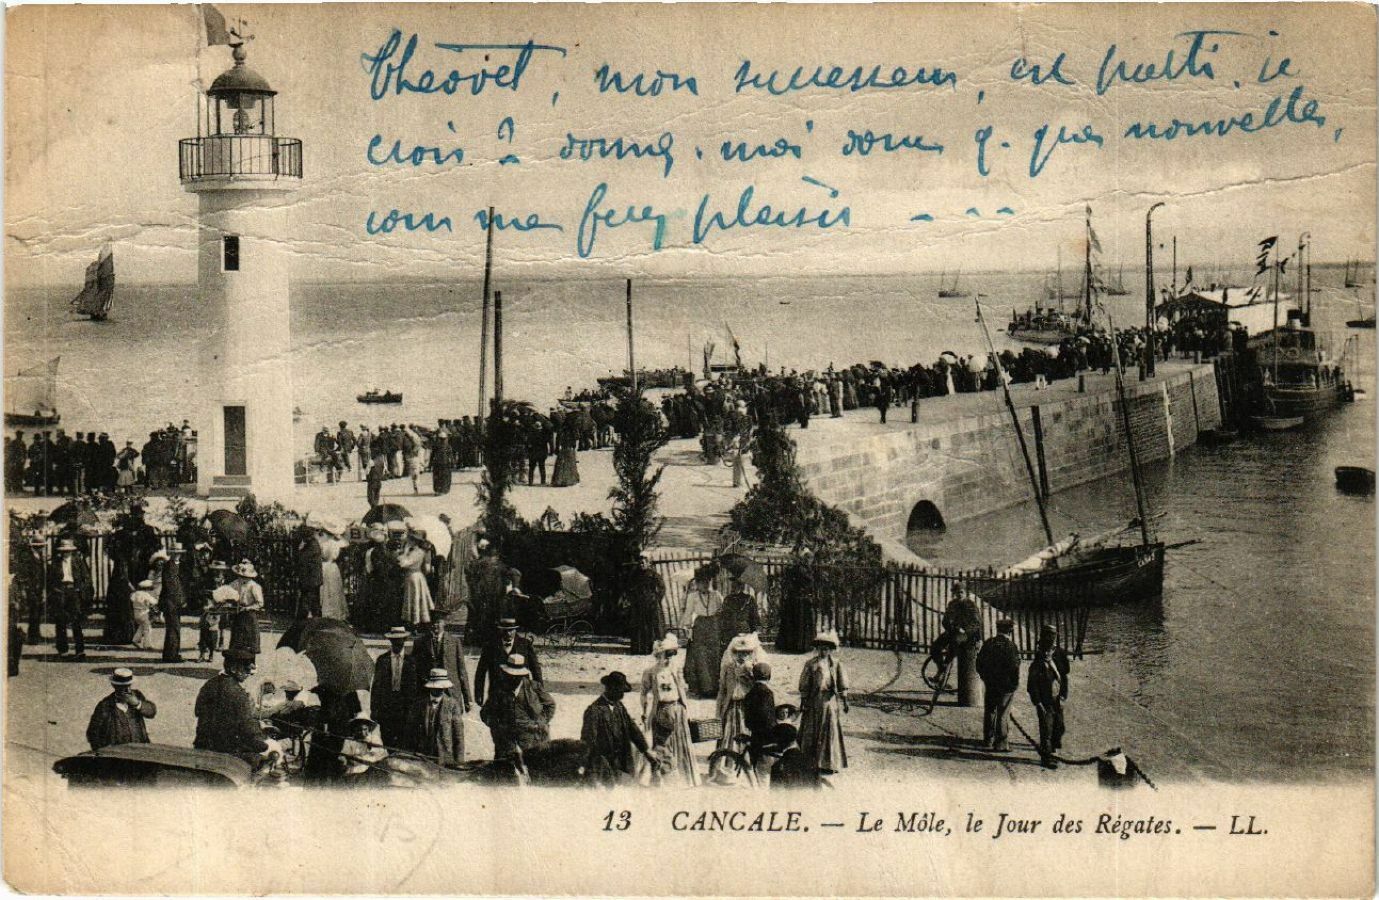 mon successeur, est parti, je
crois à donne moi donc q. ques nouvelles,
plaisir - - -
13 CANCALE. — Le Môle, le Jour des Régates. — LL.